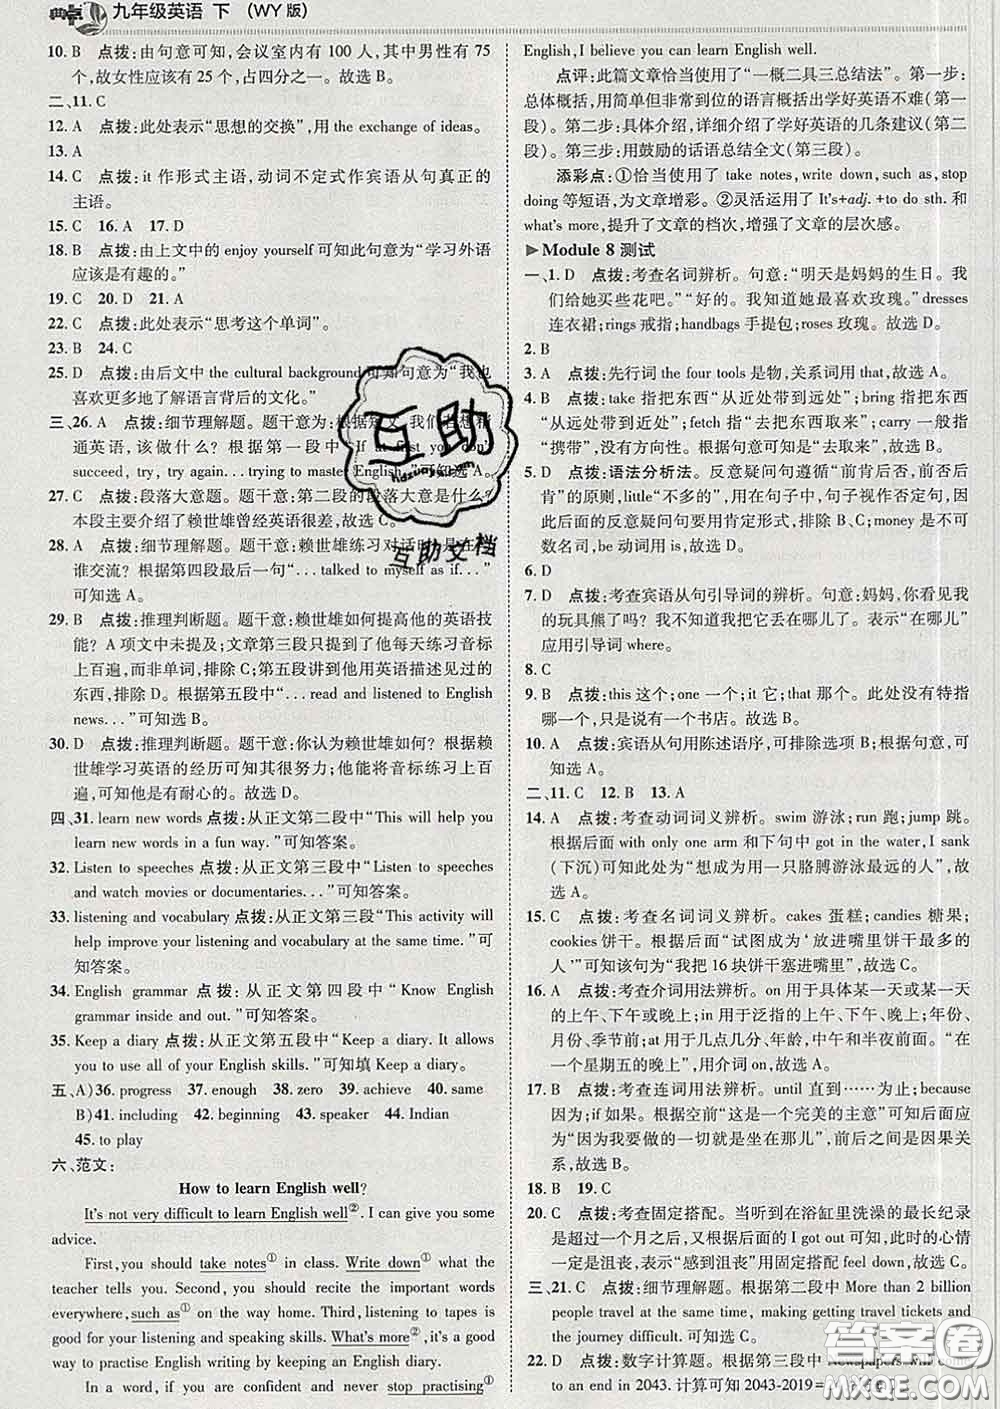 典中点 九年级英语 下 (WY版)
10. B 点拨:由句意可知,会议室内有 100 人,其中男性有 75
个,故女性应该有 25 个,占四分之一。故选 B。
二、11. C
12. A 点拨:此处表示“思想的交换”,用 the exchange of ideas。
13. A
14. C 点拨:it 作形式主语,动词不定式作宾语从句真正的
主语。
15. C 16. A 17. D
18. B 点拨:由上文中的 enjoy yourself 可知此句意为“学习外语
应该是有趣的。”
19. C 20. D 21. A
22. C 点拨:此处表示“思考这个单词”。
23. B 24. C
25. D 点拨:由后文中的 the cultural background 可知句意为“我也
喜欢更多地了解语言背后的文化。”
三、26. A 点拨:细节理解题。题干意为:根据短文,我们若想精
通英语,该做什么? 根据第一段中“If at first you don't
succeed, try, try again. . . trying to master English.”可知选 A。
27. C 点拨:段落大意题。题干意:第二段的段落大意是什么?
本段主要介绍了赖世雄曾经英语很差,故选 C。
28. A 点拨:细节理解题。题干意:赖世雄练习对话时是在
谁交流? 根据第四段最后一句“. . . talked to myself as if. . .”
可知选 A。
29. B 点拨:推理判断题。题干意:赖世雄如何提高他的英语技
能? A 项文中未提及;文章第三段只提到了他每天练习音标
上百遍,而非单词,排除 C;第五段讲到他用英语描述见过的
东西,排除 D。根据第五段中“. . . read and listened to English
news. . .”可知选 B。
30. D 点拨:推理判断题。题干意:你认为赖世雄如何? 根据赖
世雄学习英语的经历可知其很努力;他能将音标练习上百
遍,可知他是有耐心的。故选 D。
四、31. learn new words 点拨:从正文第二段中“This will help you
learn new words in a fun way.”可知答案。
32. Listen to speeches 点拨:从正文第三段中“Listen to speeches
and watch movies or documentaries. . .”可知答案。
33. listening and vocabulary 点拨:从正文第三段“This activity will
help improve your listening and vocabulary at the same time.”可
知答案。
34. English grammar 点拨:从正文第四段中“Know English
grammar inside and out.”可知答案。
35. Keep a diary 点拨:从正文第五段中“Keep a diary. It allows
you to use all of your English skills.”可知填 Keep a diary。
五、A)36. progress 37. enough 38. zero 39. achieve 40. same
B)41. including 42. beginning 43. speaker 44. Indian
45. to play
六、范文:
How to learn English well?
It's not very difficult to learn English well②. I can give you some
advice.
First, you should take notes① in class. Write down① what the
teacher tells you. Second, you should recite the important words
everywhere, such as① on the way home. Third, listening to tapes is
good for your listening and speaking skills. What's more②, it's a good
way to practise English writing by keeping an English diary.
In a word, if you are confident and never stop practising①
English, I believe you can learn English well.
点评:此篇文章恰当使用了“一概二具三总结法”。第一步:
总体概括,用简单但非常到位的语言概括出学好英语不难(第一
段)。第二步:具体介绍,详细介绍了学好英语的几条建议(第二
段)。第三步:用鼓励的话语总结全文(第三段)。
添彩点:①恰当使用了 take notes, write down, such as, stop
doing 等短语,为文章增彩。②灵活运用了 It's+adj. +to do sth. 和
what's more,提升了文章的档次,增强了文章的层次感。
Module 8 测试
一、1. D 点拨:考查名词辨析。句意:“明天是妈妈的生日。我
们给她买些花吧。”“好的。我知道她最喜欢玫瑰。”dresses
连衣裙;rings 戒指;handbags 手提包;roses 玫瑰。故选 D。
2. B
3. A 点拨:先行词 the four tools 是物,关系词用 that,故选 A。
4. B 点拨:take 指把东西“从近处带到远处”;bring 指把东西
“从远处带到近处”;fetch 指“去把东西取来”;carry 一般指
“携带”,没有方向性。根据句意可知是“去取来”,故选 B。
5. D 点拨:语法分析法。反意疑问句遵循“前肯后否,前否后
肯”的原则,little“不多的”,用在句子中,句子视作否定形式,
因此后面的反意疑问句要用肯定形式,排除 B、C;money 是不可
数名词,be 动词用 is。故选 D。
6. D
7. D 点拨:考查宾语从句引导词的辨析。句意:妈妈,你看见我
的玩具熊了吗? 我不知道我把它丢在哪儿了。表示“在哪儿”
应用引导词 where。
8. C
9. B 点拨:this 这个;one 一个;it 它;that 那个。此处没有特指
哪一个,只是说有一个书店。故选 B。
10. A 点拨:宾语从句用陈述语序,可排除选项 B;根据句意,可
知选 A。
二、11. C 12. B 13. A
14. A 点拨:考查动词词义辨析。swim 游泳;run 跑;jump 跳。
根据 with only one arm 和下句中 got in the water, I sank
(下沉)可知此处为“想成为一只胳膊游泳最远的人”,故
选 A。
15. C 点拨:考查名词词义辨析。cakes 蛋糕;candies 糖果;
cookies 饼干。根据后面“试图成为‘放进嘴里饼干最多的
人’”可知该句为“我把 16 块饼干塞进嘴里”,故选 C。
16. A 点拨:考查介词用法辨析。on 用于具体某一天或某一天
的上午、下午或晚上;in 用于泛指的上午、下午、晚上;年份、
月份、季节前;at 用于几点几分、年龄,中午和半夜前面。“在
一个星期五的晚上”,用介词 on,故选 A。
17. B 点拨:考查连词用法辨析。until 直到……为止;because
因为;if 如果。根据空前“这是一个完美的主意”可知后面应
为“因为我要做的一切就是坐在那儿”,前后句为因果关
系,故选 B。
18. B 19. C
20. C 点拨:考查固定搭配。当听到在浴缸里洗澡的最长纪录
是超过一个月之后,又根据后面的 I got out 可知,此时的心情
一定是沮丧,表示“感到沮丧”用固定搭配 feel down,故选 C。
三、21. C 点拨:细节理解题。根据第二段中 More than 2 billion
people travel at the same time, making getting travel tickets and
the journey difficult. 可知选 C。
22. D 点拨:数字计算题。根据第三段中 Newspapers will come
to an end in 2043. 计算可知 2043-2019=
互助
huzuoye.com
互助文档
答案圈